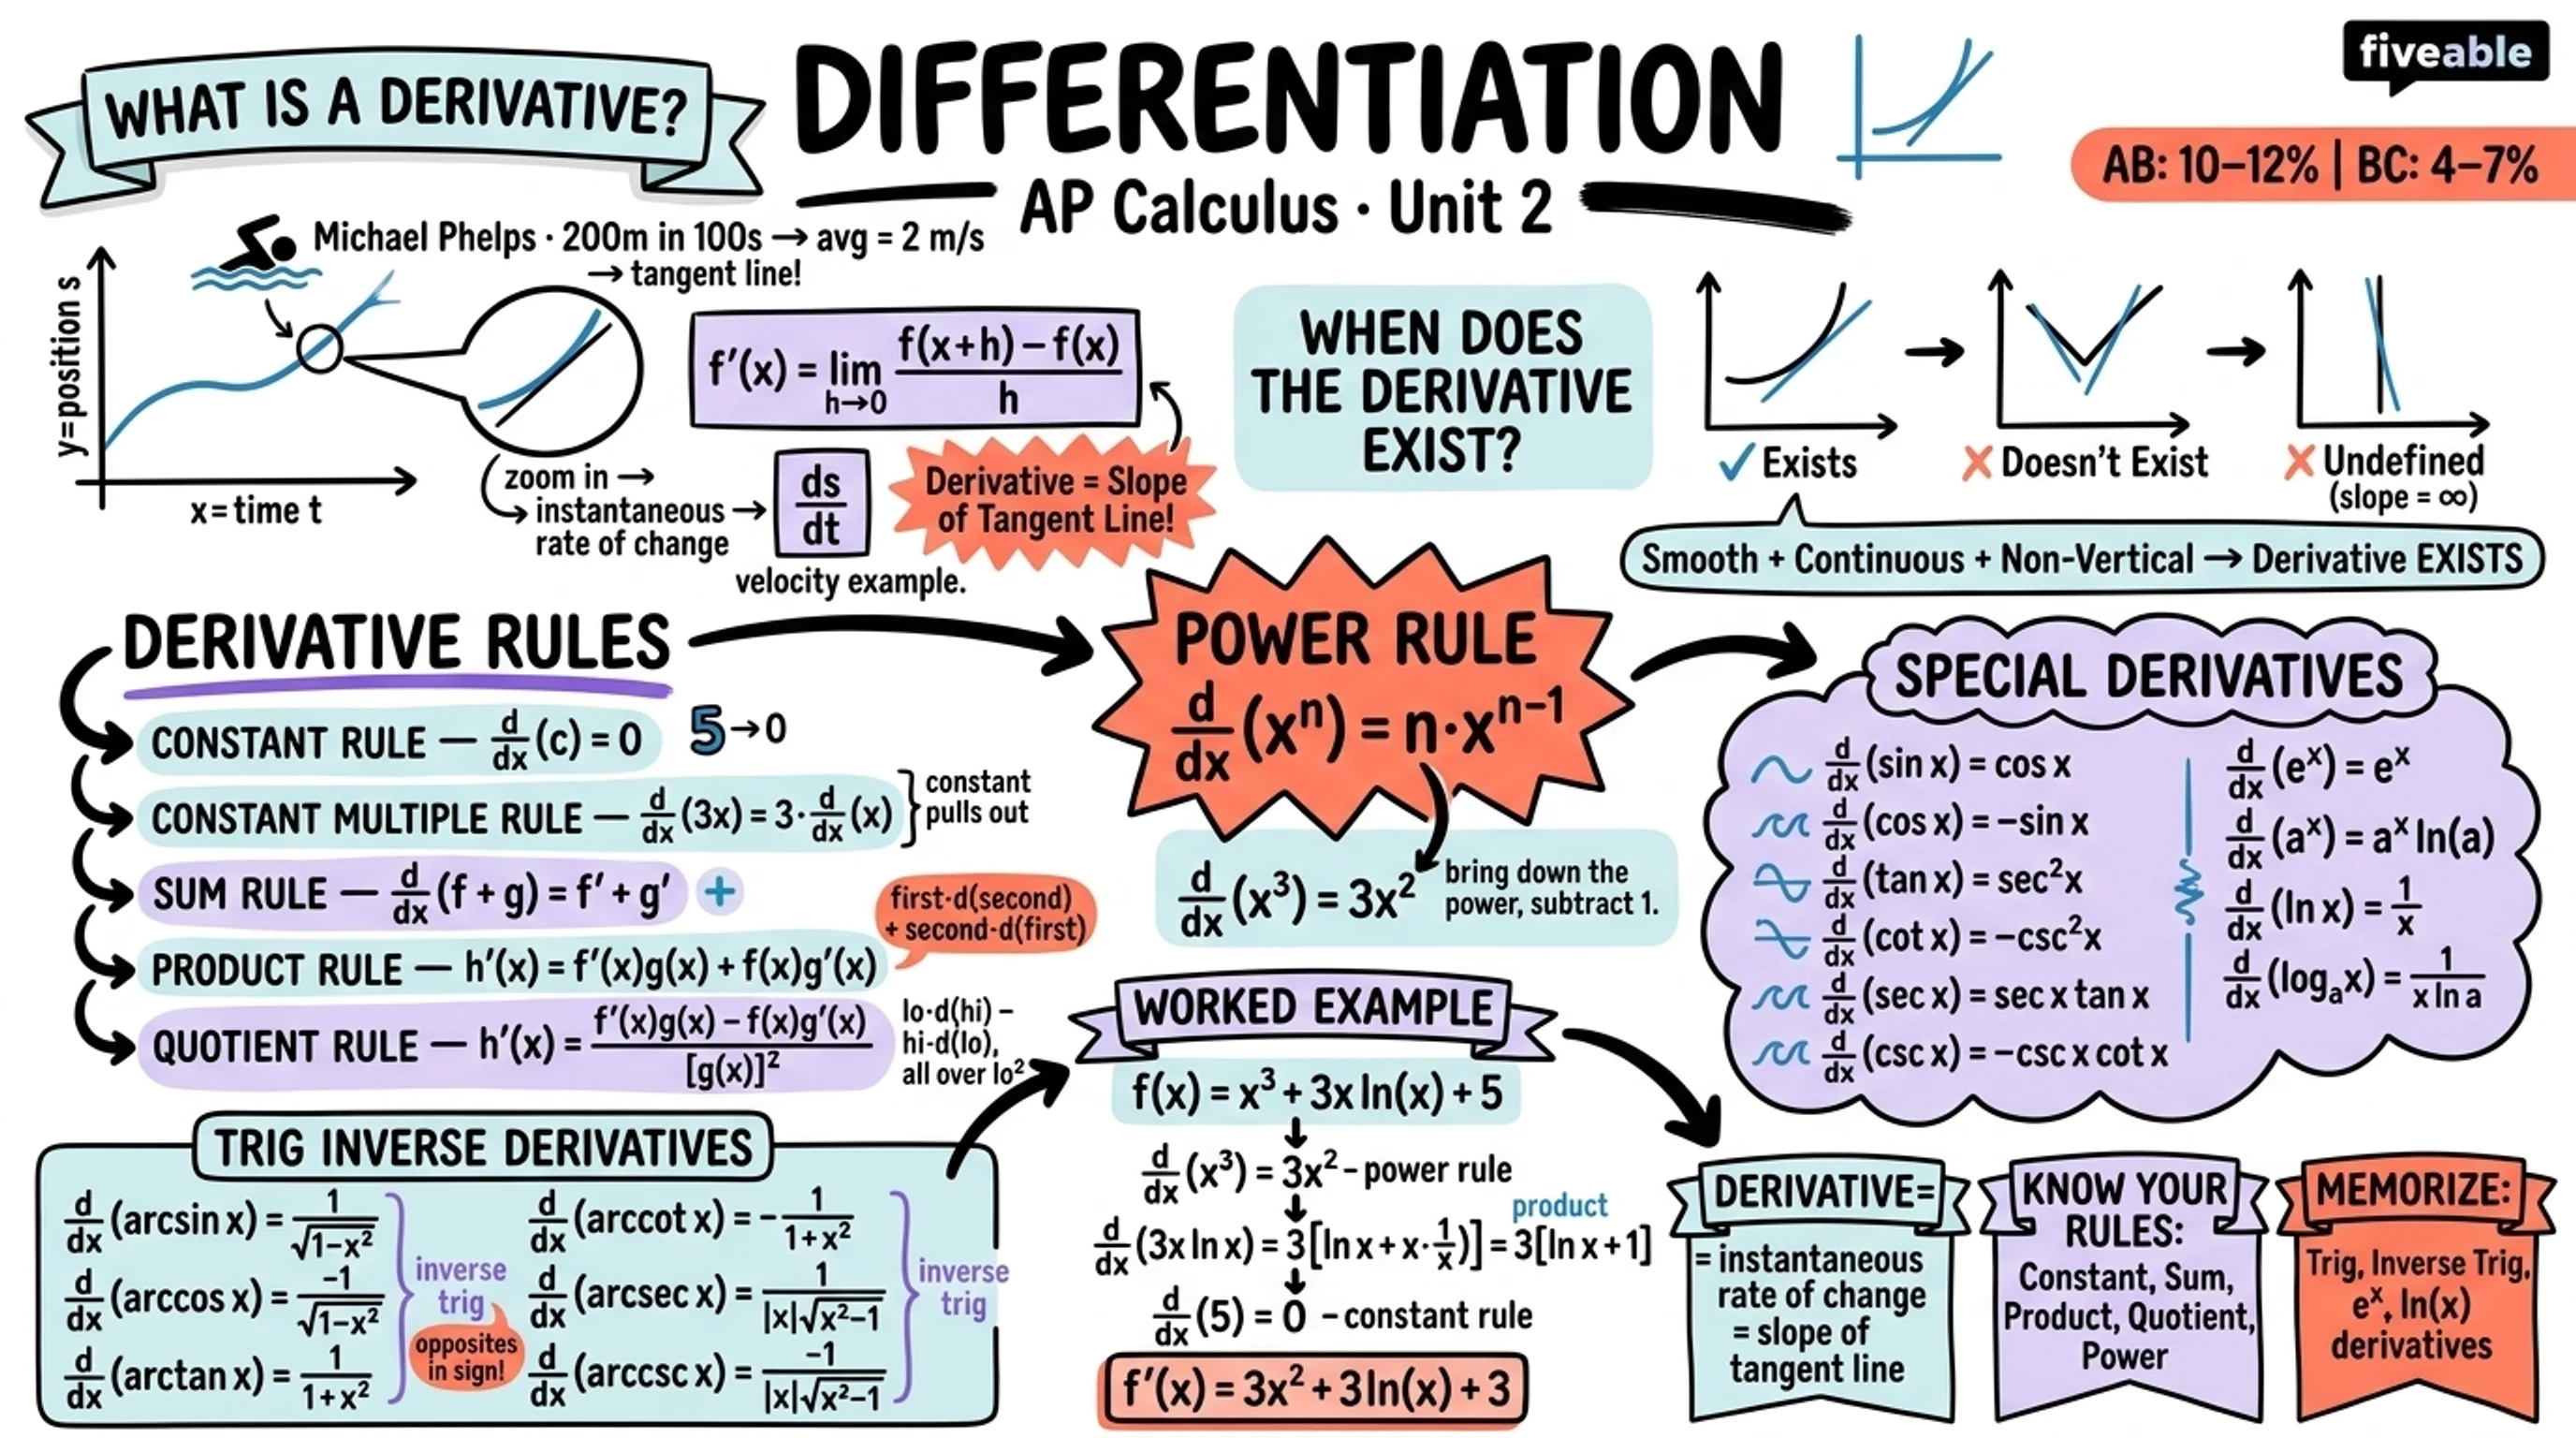 WHAT IS A DERIVATIVE?
DIFFERENTIATION
AP Calculus · Unit 2
fiveable
AB: 10–12% | BC: 4–7%
Michael Phelps · 200m in 100s → avg = 2 m/s
→ tangent line!
y=position s
x=time t
zoom in →
instantaneous →
rate of change
f′(x) = lim h→0 f(x+h) – f(x) / h
ds/dt
velocity example.
Derivative = Slope
of Tangent Line!
WHEN DOES
THE DERIVATIVE
EXIST?
✓ Exists
✗ Doesn't Exist
✗ Undefined
(slope = ∞)
Smooth + Continuous + Non-Vertical → Derivative EXISTS
DERIVATIVE RULES
CONSTANT RULE — d/dx (c) = 0
5 → 0
CONSTANT MULTIPLE RULE — d/dx (3x) = 3· d/dx (x)
constant
pulls out
SUM RULE — d/dx (f + g) = f′ + g′
+
PRODUCT RULE — h′(x) = f′(x)g(x) + f(x)g′(x)
first·d(second)
+ second·d(first)
QUOTIENT RULE — h′(x) = f′(x)g(x) – f(x)g′(x) / [g(x)]²
lo·d(hi) –
hi-d(lo),
all over lo²
POWER RULE
d/dx (xⁿ) = n·xⁿ⁻¹
d/dx (x³) = 3x²
bring down the
power, subtract 1.
SPECIAL DERIVATIVES
d/dx (sin x) = cos x
d/dx (cos x) = –sin x
d/dx (tan x) = sec²x
d/dx (cot x) = –csc²x
d/dx (sec x) = sec x tan x
d/dx (csc x) = –csc x cot x
d/dx (eˣ) = eˣ
d/dx (aˣ) = aˣ ln(a)
d/dx (ln x) = 1/x
d/dx (logₐx) = 1 / x ln a
TRIG INVERSE DERIVATIVES
d/dx (arcsin x) = 1/√1–x²
d/dx (arccos x) = –1/√1–x²
d/dx (arctan x) = 1/1+x²
inverse
trig
opposites
in sign!
d/dx (arccot x) = – 1/1+x²
d/dx (arcsec x) = 1/|x|√x²–1
d/dx (arccsc x) = –1/|x|√x²–1
inverse
trig
WORKED EXAMPLE
f(x) = x³ + 3x ln(x) + 5
d/dx (x³) = 3x² – power rule
product
d/dx (3x ln x) = 3[ln x + x· 1/x)] = 3[ln x + 1]
d/dx (5) = 0 – constant rule
f′(x) = 3x² + 3 ln(x) + 3
DERIVATIVE=
= instantaneous
rate of change
= slope of
tangent line
KNOW YOUR
RULES:
Constant, Sum,
Product, Quotient,
Power
MEMORIZE:
Trig, Inverse Trig,
eˣ, ln(x)
derivatives